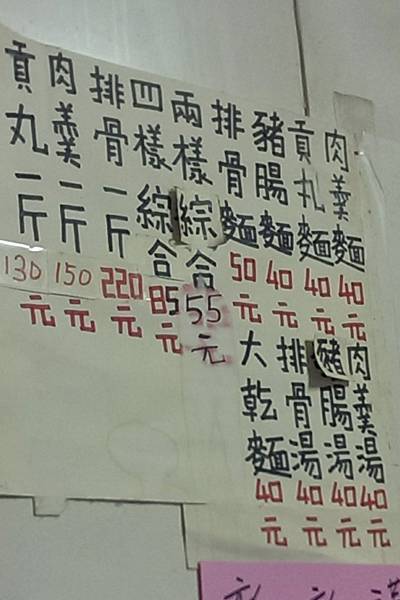 肉羹麵40元
貢丸麵40元
豬腸麵40元
排骨麵50元
兩樣綜合55元
四樣綜合85元
排骨一斤220元
肉羹一斤150元
貢丸一斤130元
肉羹湯40元
豬腸湯40元
排骨湯40元
大乾麵40元